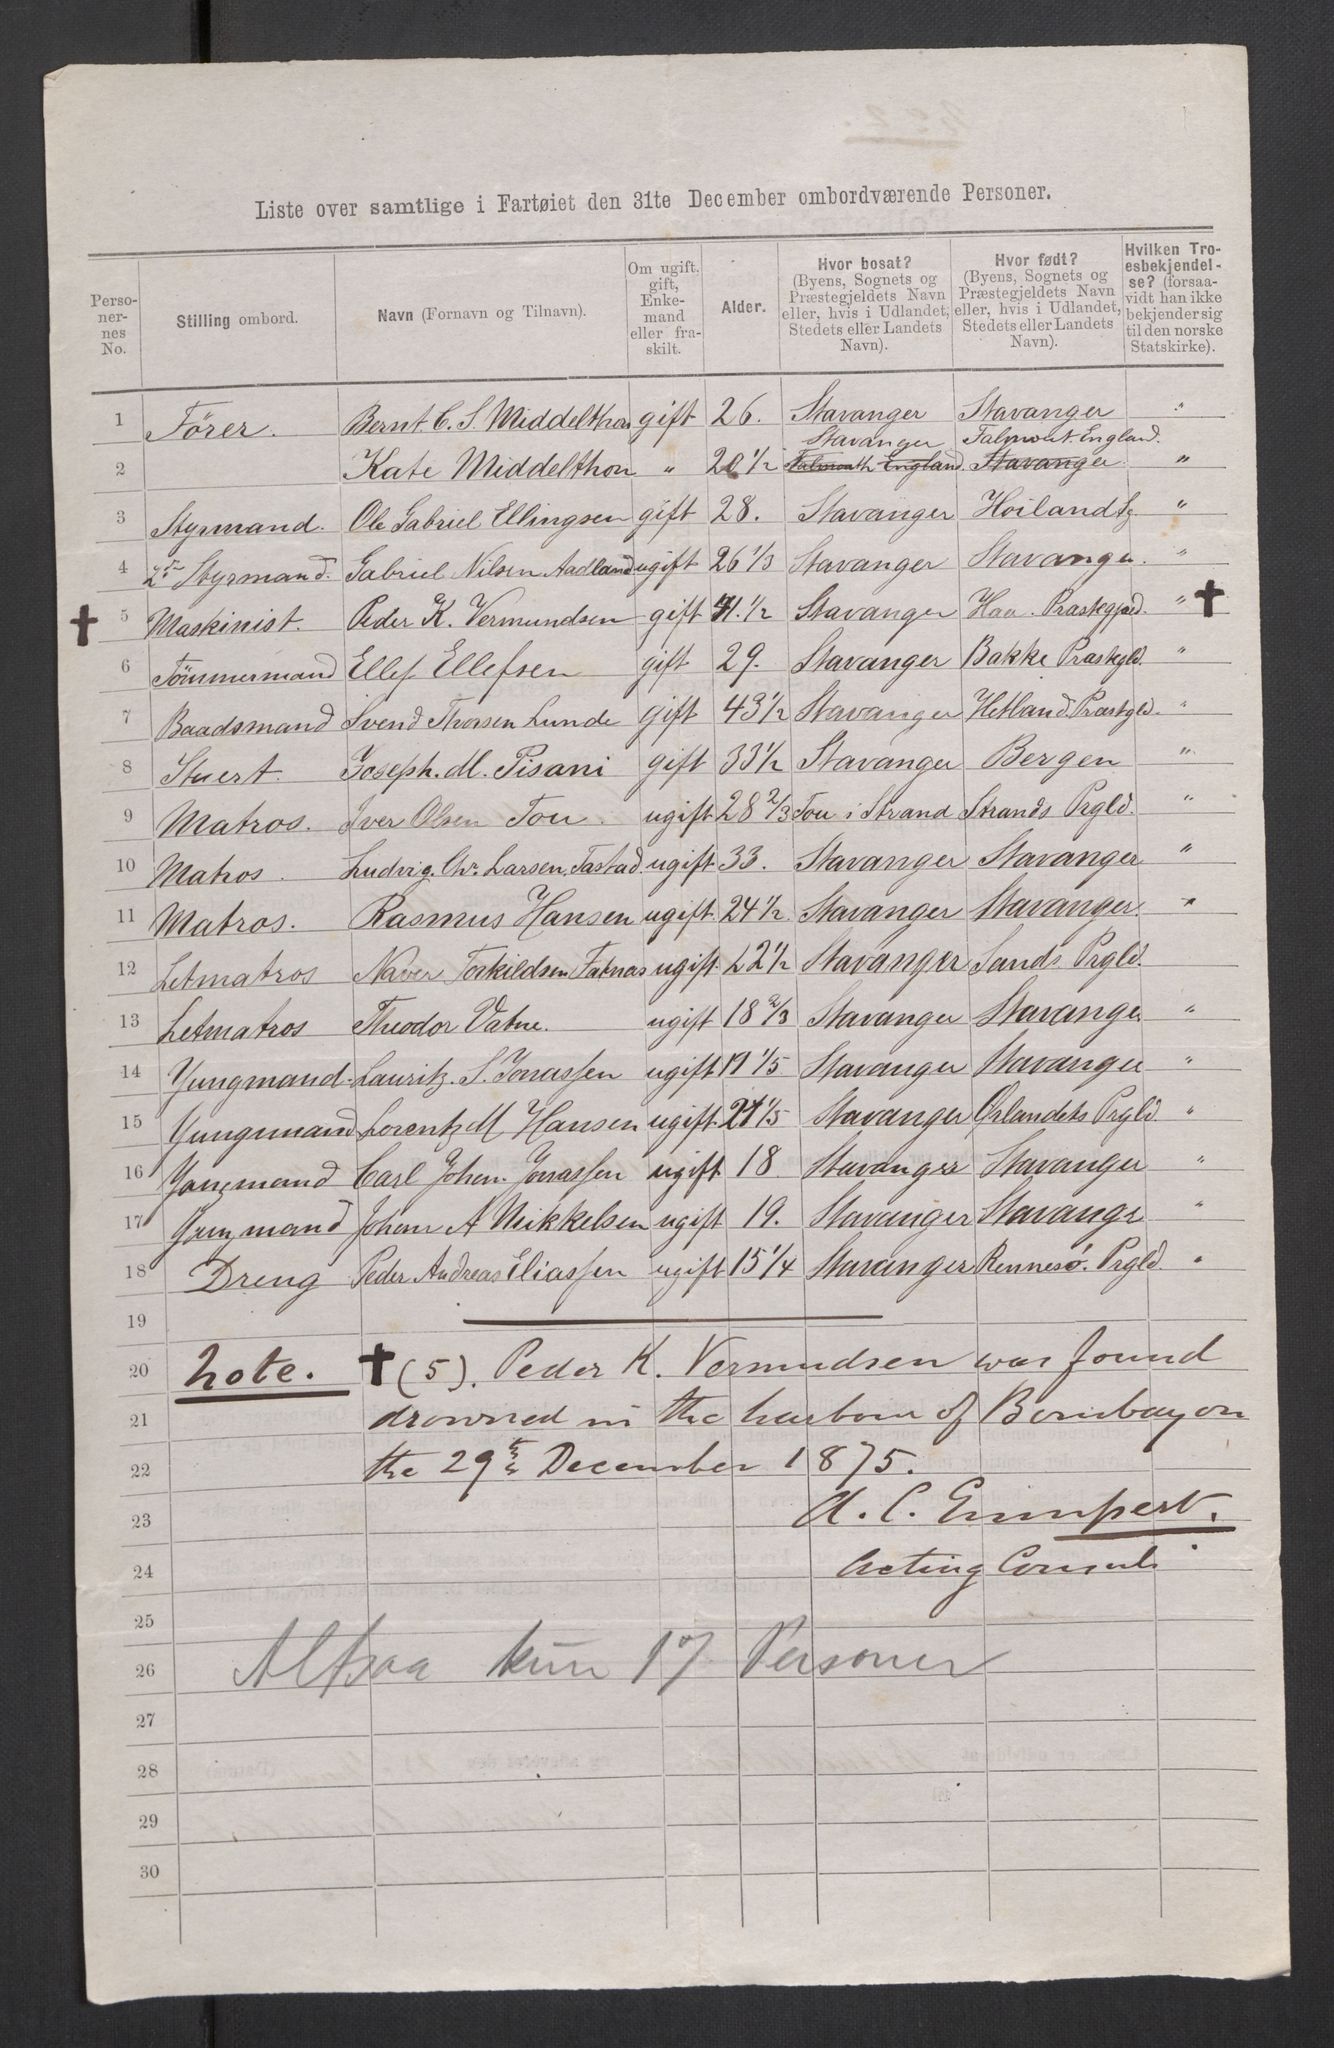 Liste over samtlige i Fartøiet den 31te December ombordværende Personer.
Perso-
ner-
nes
No.
Stilling ombord.
Navn (Fornavn og Tilnavn).
Om ugift,
gift,
Enke-
mand
eller fra-
skilt.
Alder.
Hvor bosat?
(Byens, Sognets og
Præstegjeldets Navn
eller, hvis i Udlandet,
Stedets eller Landets
Navn).
Hvor født?
(Byens, Sognets og
Præstegjeldets Navn
eller, hvis i Udlandet,
Stedets eller Landets
Navn).
Hvilken Tro-
esbekjendel-
se? (forsaa-
vidt han ikke
bekjender sig
til den norske
Statskirke).
1 Förer. Bernt. C. S. Middelthon gift 26. Stavanger Stavanger "
Stavanger Falmout England.
2 Kate Middelthon " 20 1/2 Falmouth England Stavanger "
3 Styrmand. Ole Gabriel Ellingsen gift 28. Stavanger Hoiland "
4 2den Styrmand. Gabriel Nilsen Aadland ugift 26 1/3 Stavanger Stavanger. "
✝ 5 Maskinist. Peder K. Vermundsen gift 41.1/2 Stavanger Haa. Prastegjed. " ✝
6 Tömmermand Ellef Ellefsen gift 29. Stavanger Bakke Prastgld. "
7 Baadsmand Svend Thorsen Lunde gift 43 1/2 Stavanger Hetland. Prastgld. "
8 Stuert. Joseph. M. Pisani gift 33 1/2 Stavanger Bergen "
9 Matros. Iver Olsen Tou. ugift 28 2/3 Tou i Strand Strands Prgld. "
10 Matros. Ludvig. Chr. Larsen Tastad. ugift 33. Stavanger Stavanger "
11 Matros. Rasmus Hansen ugift. 24 1/2. Stavanger Stavanger. "
12 Letmatros Naver Torkildsen Fatnas ugift. 22 1/2 Stavanger Sands Prgld.
13 Letmatros Theodor Vatne. ugift 18 2/3 Stavanger Stavanger "
14 Yungmand. Lauritz. S. Jonassen ugift 19 1/5 Stavanger Stavanger "
15 Yungmand Lorentz M Hansen ugift. 21 1/5 Stavanger Örlandets Prgld. "
16 Yongmand Carl Johan. Jonassen ugift 18 Stavanger Stavanger "
17 Yongmand Johan A Mikkelsen ugift 19. Stavanger Stavanger "
18 Dreng Peder Andreas Eliassen ugift 15 1/4 Stavanger Rennesö. Prgld. "
19
20 Note. ✝ (5). Peder K. Vermudsen was found
21 drowned in the harbour of Bombay on
22 the 29th December 1875.
23 A. C. Gumpert.
24 Acting Consul
25
26 Altsaa kun 17 Personer
27
28
29
30